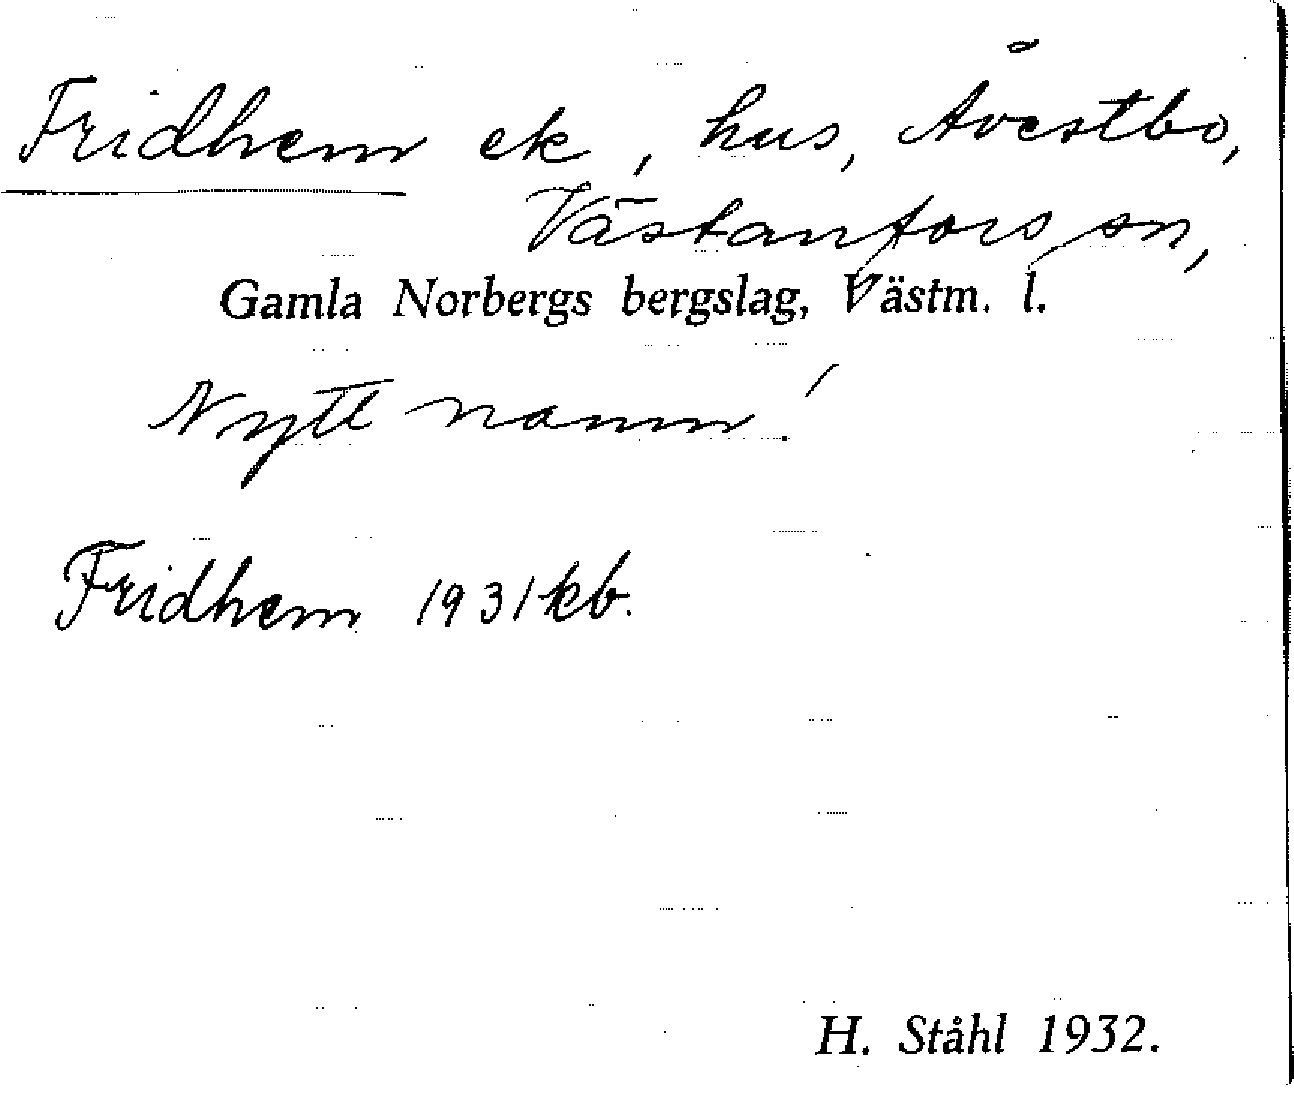 Fridhem ek, hus, Åvestbo,
Västanfors sn,
Gamla Norbergs bergslag, Västm. l.
Nytt namn!
Fridhem 1931 kb.
H. Ståhl 1932.